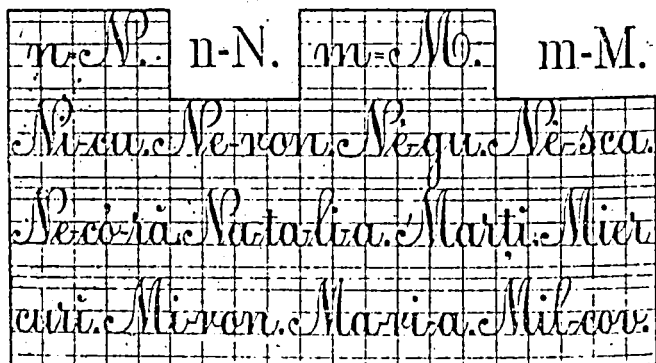 n-N. n-N. m-M. m-M.
Ni-cu. Ne-ron. Né-gu. Né-sca.
Ne-có-ră. Na-ta-li-a. Marți. Mier
curĭ. Mi-ron. Ma-ri-a. Mil-cov.